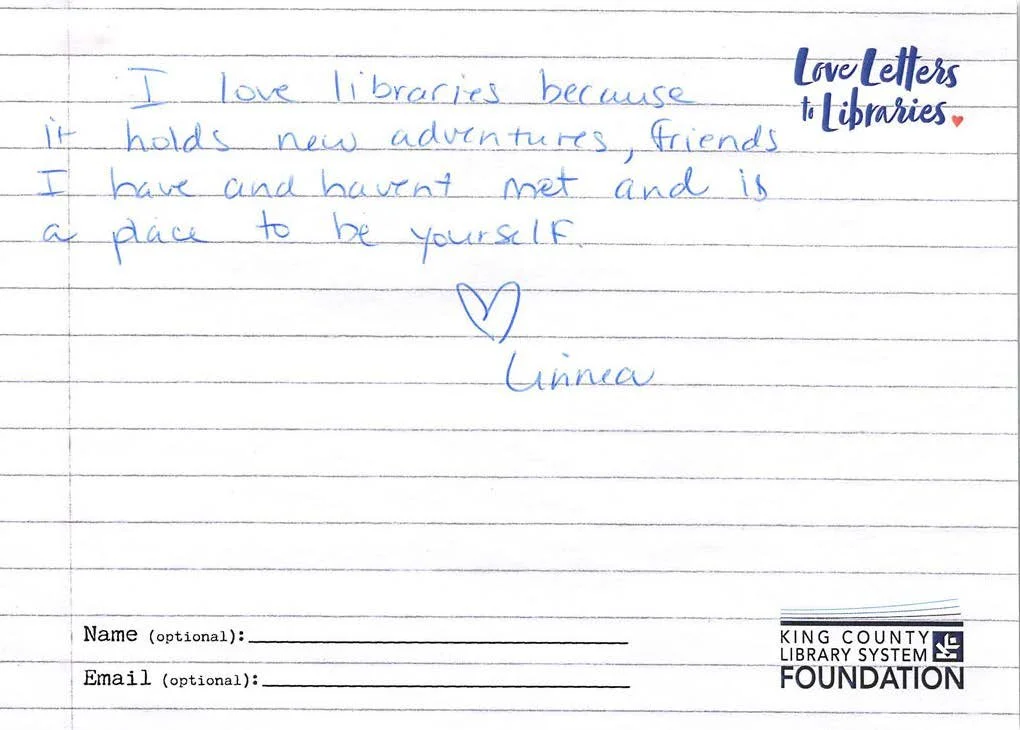 Love Letters
to Libraries
I love libraries because
it holds new adventures, friends
I have and havent met and is
a place to be yourself.
Linnea
Name (optional):
Email (optional):
KING COUNTY
LIBRARY SYSTEM
FOUNDATION